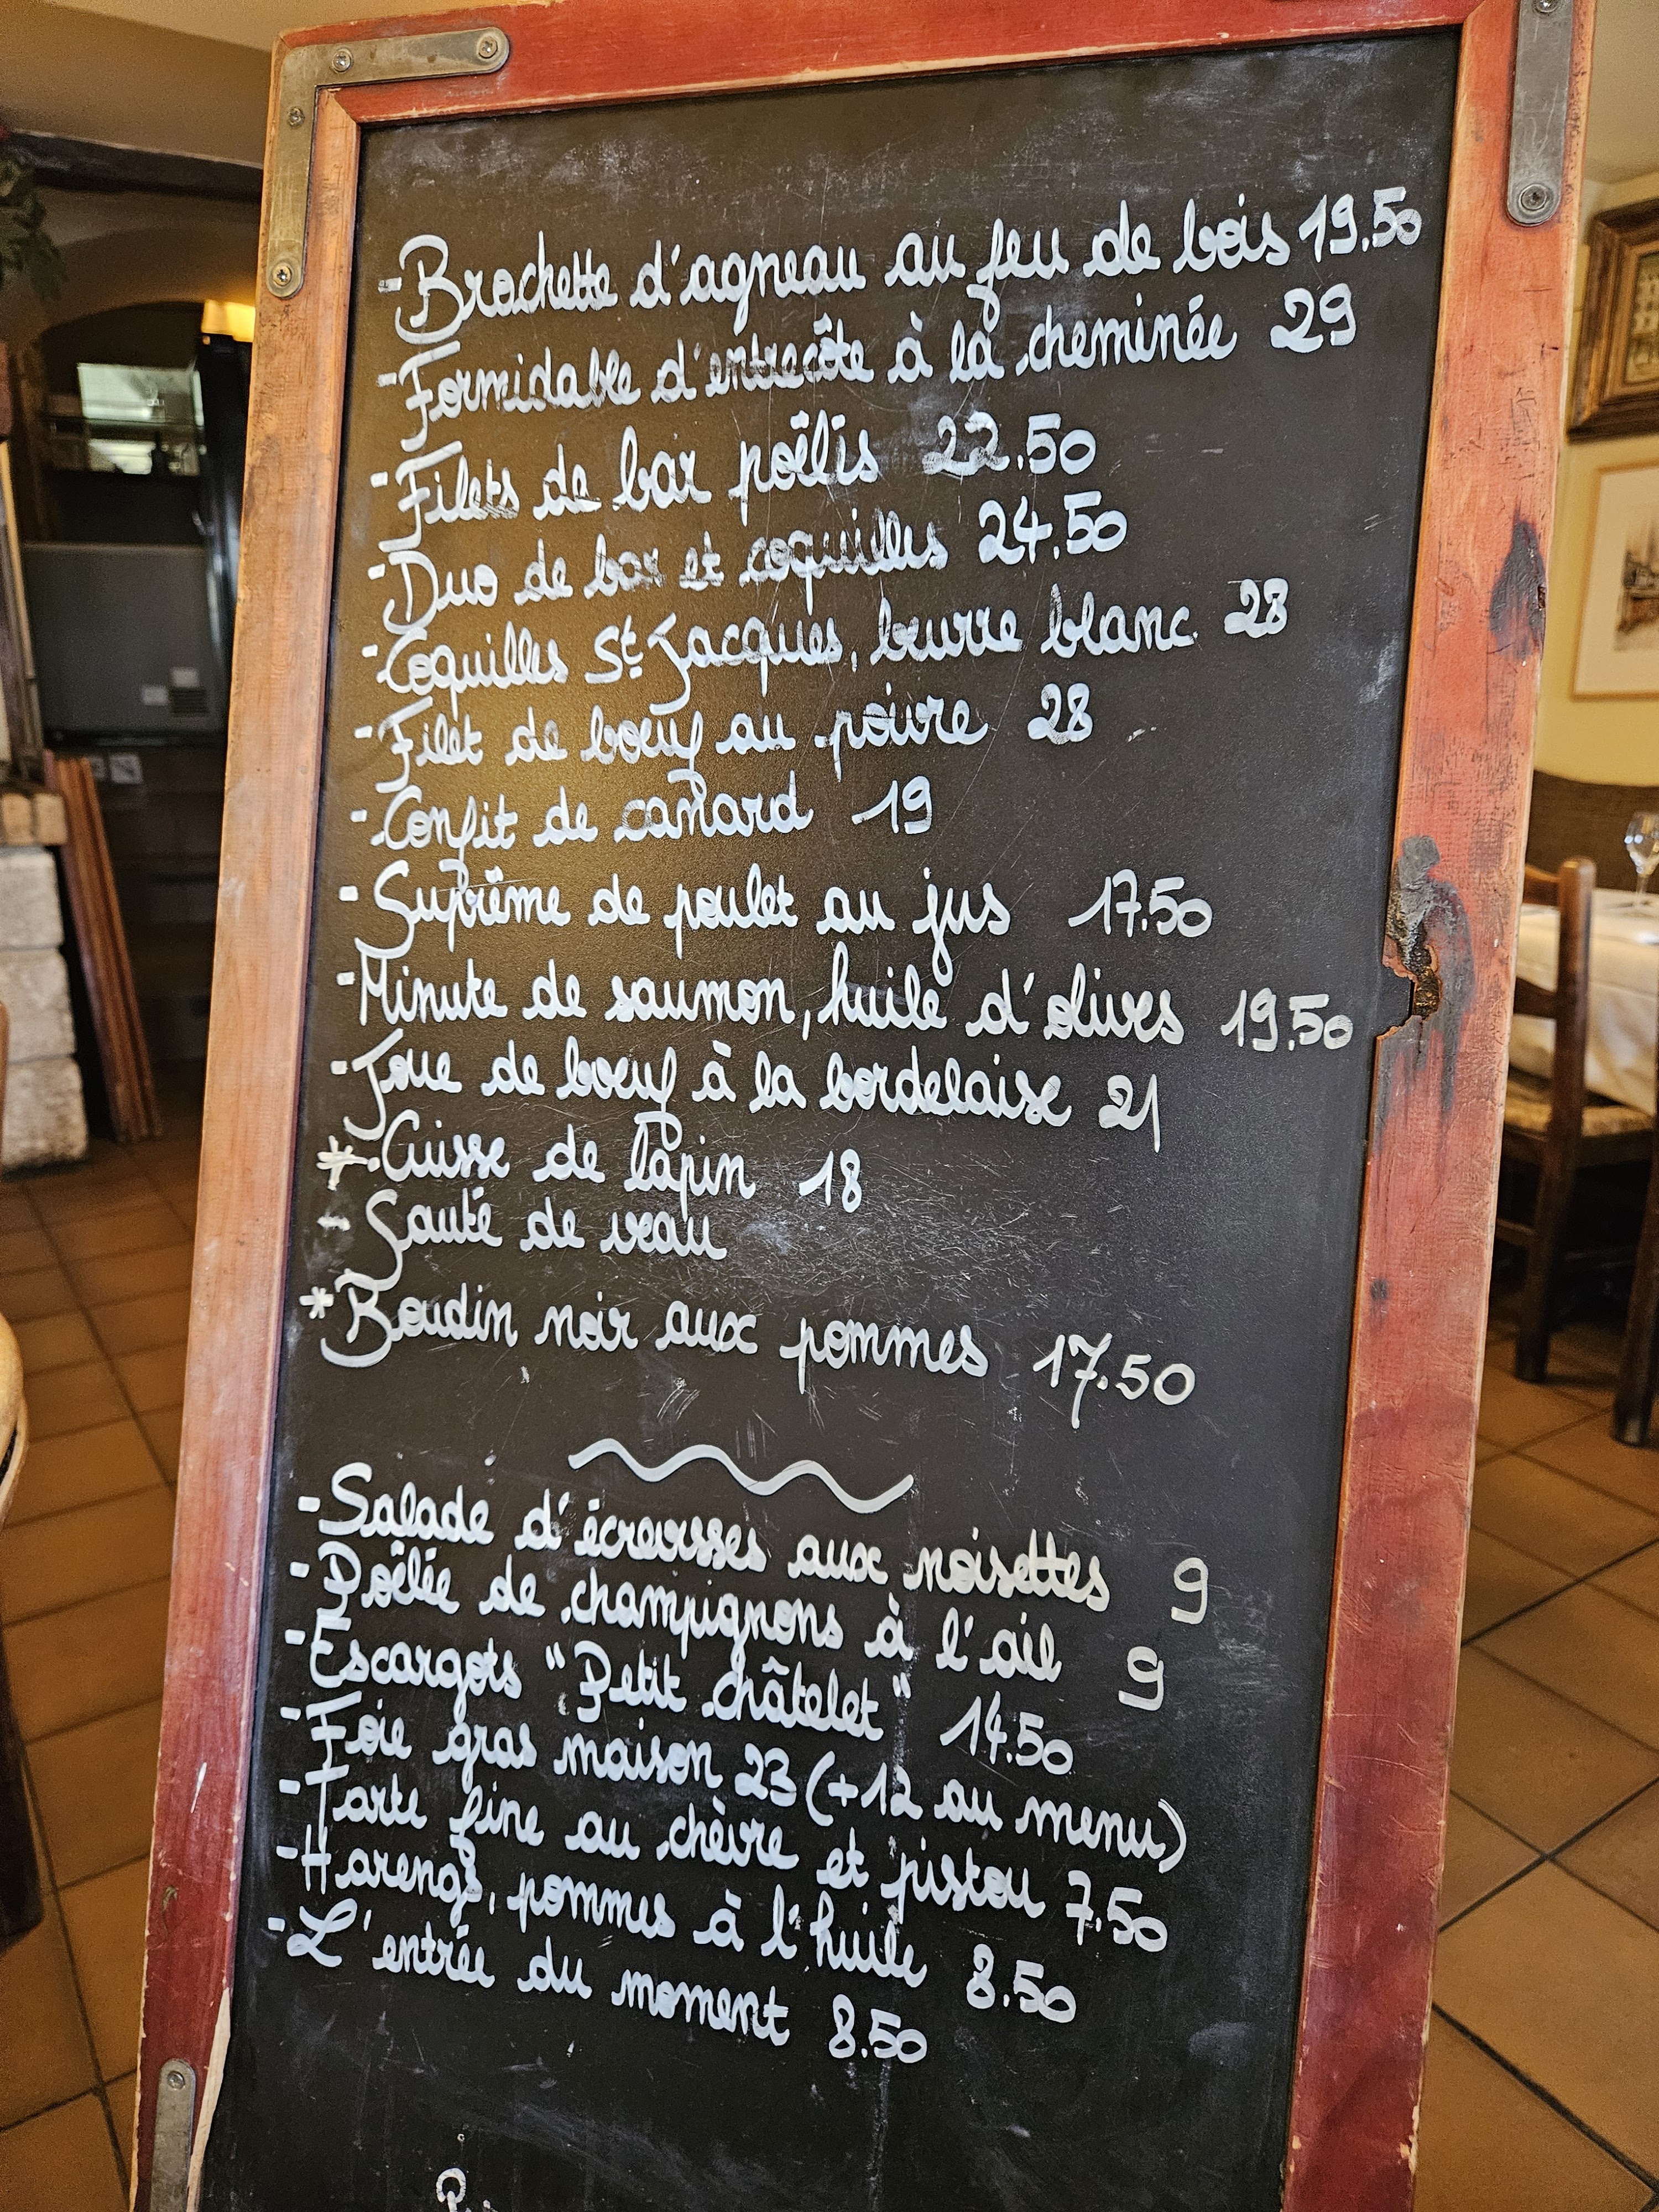 - Brochette d'agneau au feu de bois 19.50
- Formidable d'entrecôte à la cheminée 29
- Filets de bar poêlés 22.50
- Duo de bar et coquilles 24.50
- Coquilles St Jacques, beurre blanc 28
- Filet de boeuf au poivre 28
- Confit de canard 19
- Suprême de poulet au jus 17.50
- Minute de saumon, huile d'olives 19.50
- Joue de boeuf à la bordelaise 21
* Cuisse de lapin 18
- Sauté de veau
* Boudin noir aux pommes 17.50
- Salade d'écrevisses aux noisettes 9
- Poêlée de champignons à l'ail 9
- Escargots "Petit châtelet" 14.50
- Foie gras maison 23 (+12 au menu)
- Tarte fine au chèvre et pistou 7.50
- Harengs, pommes à l'huile 8.50
- L'entrée du moment 8.50